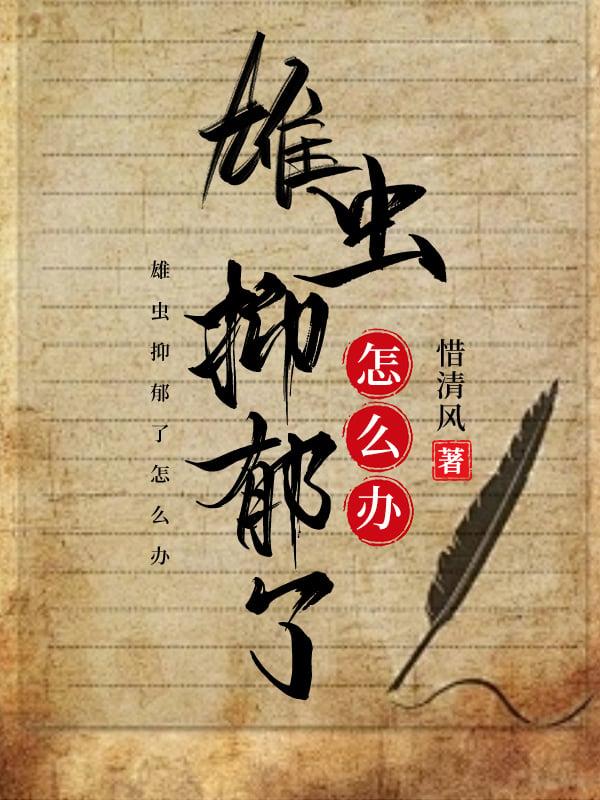 雄虫抑郁了
怎么办
惜清风
著
雄虫抑郁了怎么办